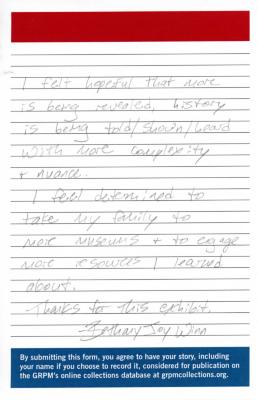 I felt hopeful that more
is being revealed, history
is being told/shown/heard
with more complexity
+ nuance.
I feel determined to
take my family to
more museums + to engage
more resources I learned
about.
-Thanks for this exhibit.
-Bethany Joy Winn
By submitting this form, you agree to have your story, including
your name if you choose to record it, considered for publication on
the GRPM's online collections database at grpmcollections.org.